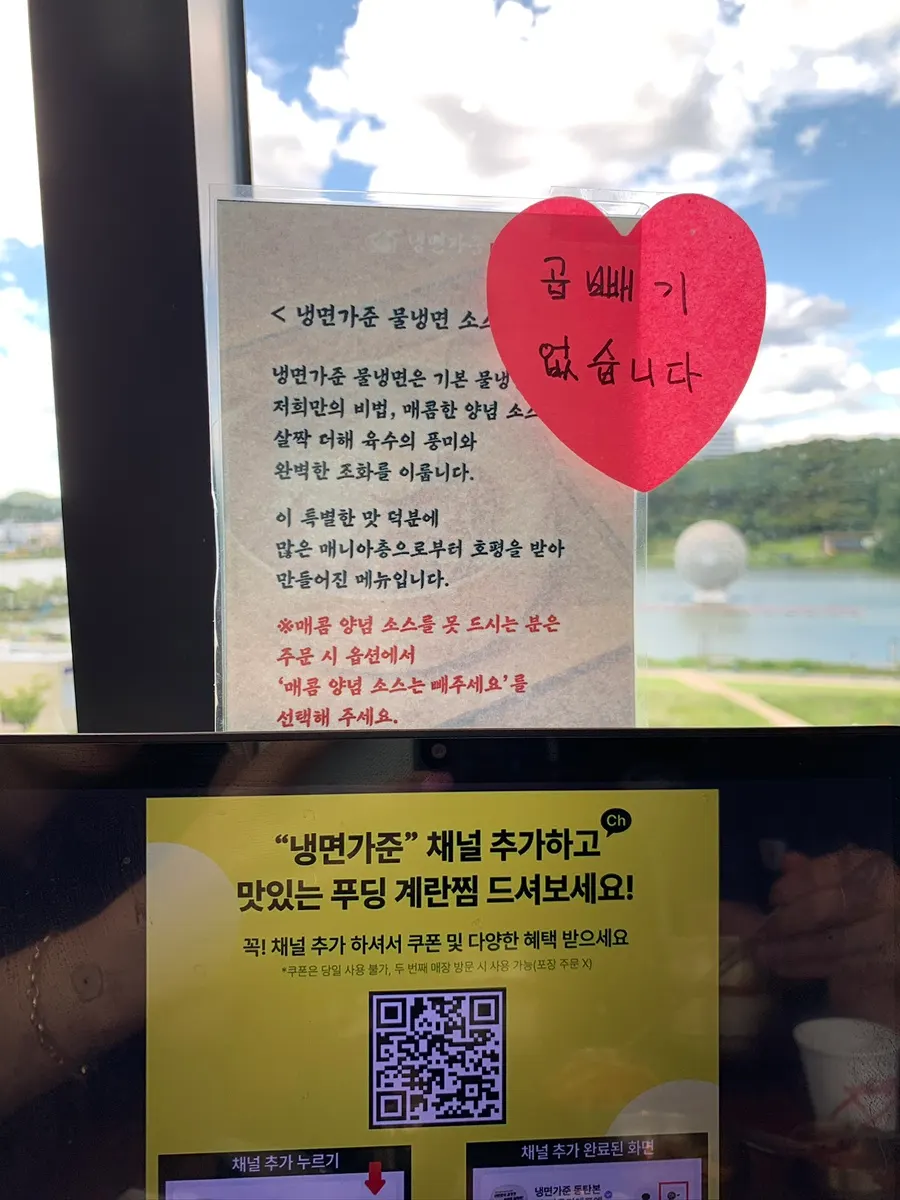 냉면가준
곱빼기
없습니다
< 냉면가준 물냉면 소스
냉면가준 물냉면은 기본 물냉
저희만의 비법, 매콤한 양념 소스
살짝 더해 육수의 풍미와
완벽한 조화를 이룹니다.
이 특별한 맛 덕분에
많은 매니아층으로부터 호평을 받아
만들어진 메뉴입니다.
※매콤 양념 소스를 못 드시는 분은
주문 시 옵션에서
‘매콤 양념 소스는 빼주세요’를
선택해 주세요.
Ch
“냉면가준” 채널 추가하고
맛있는 푸딩 계란찜 드셔보세요!
꼭! 채널 추가 하셔서 쿠폰 및 다양한 혜택 받으세요
*쿠폰은 당일 사용 불가, 두 번째 매장 방문 시 사용 가능(포장 주문 X)
채널 추가 누르기
채널 추가 완료된 화면
냉면가준 동탄본